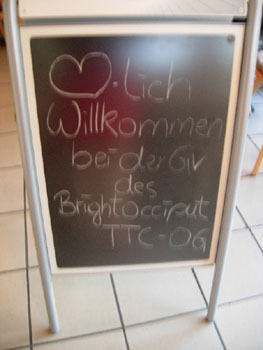 ♡-lich
Willkommen
bei der GV
des
Brightocciput
TTC-OG